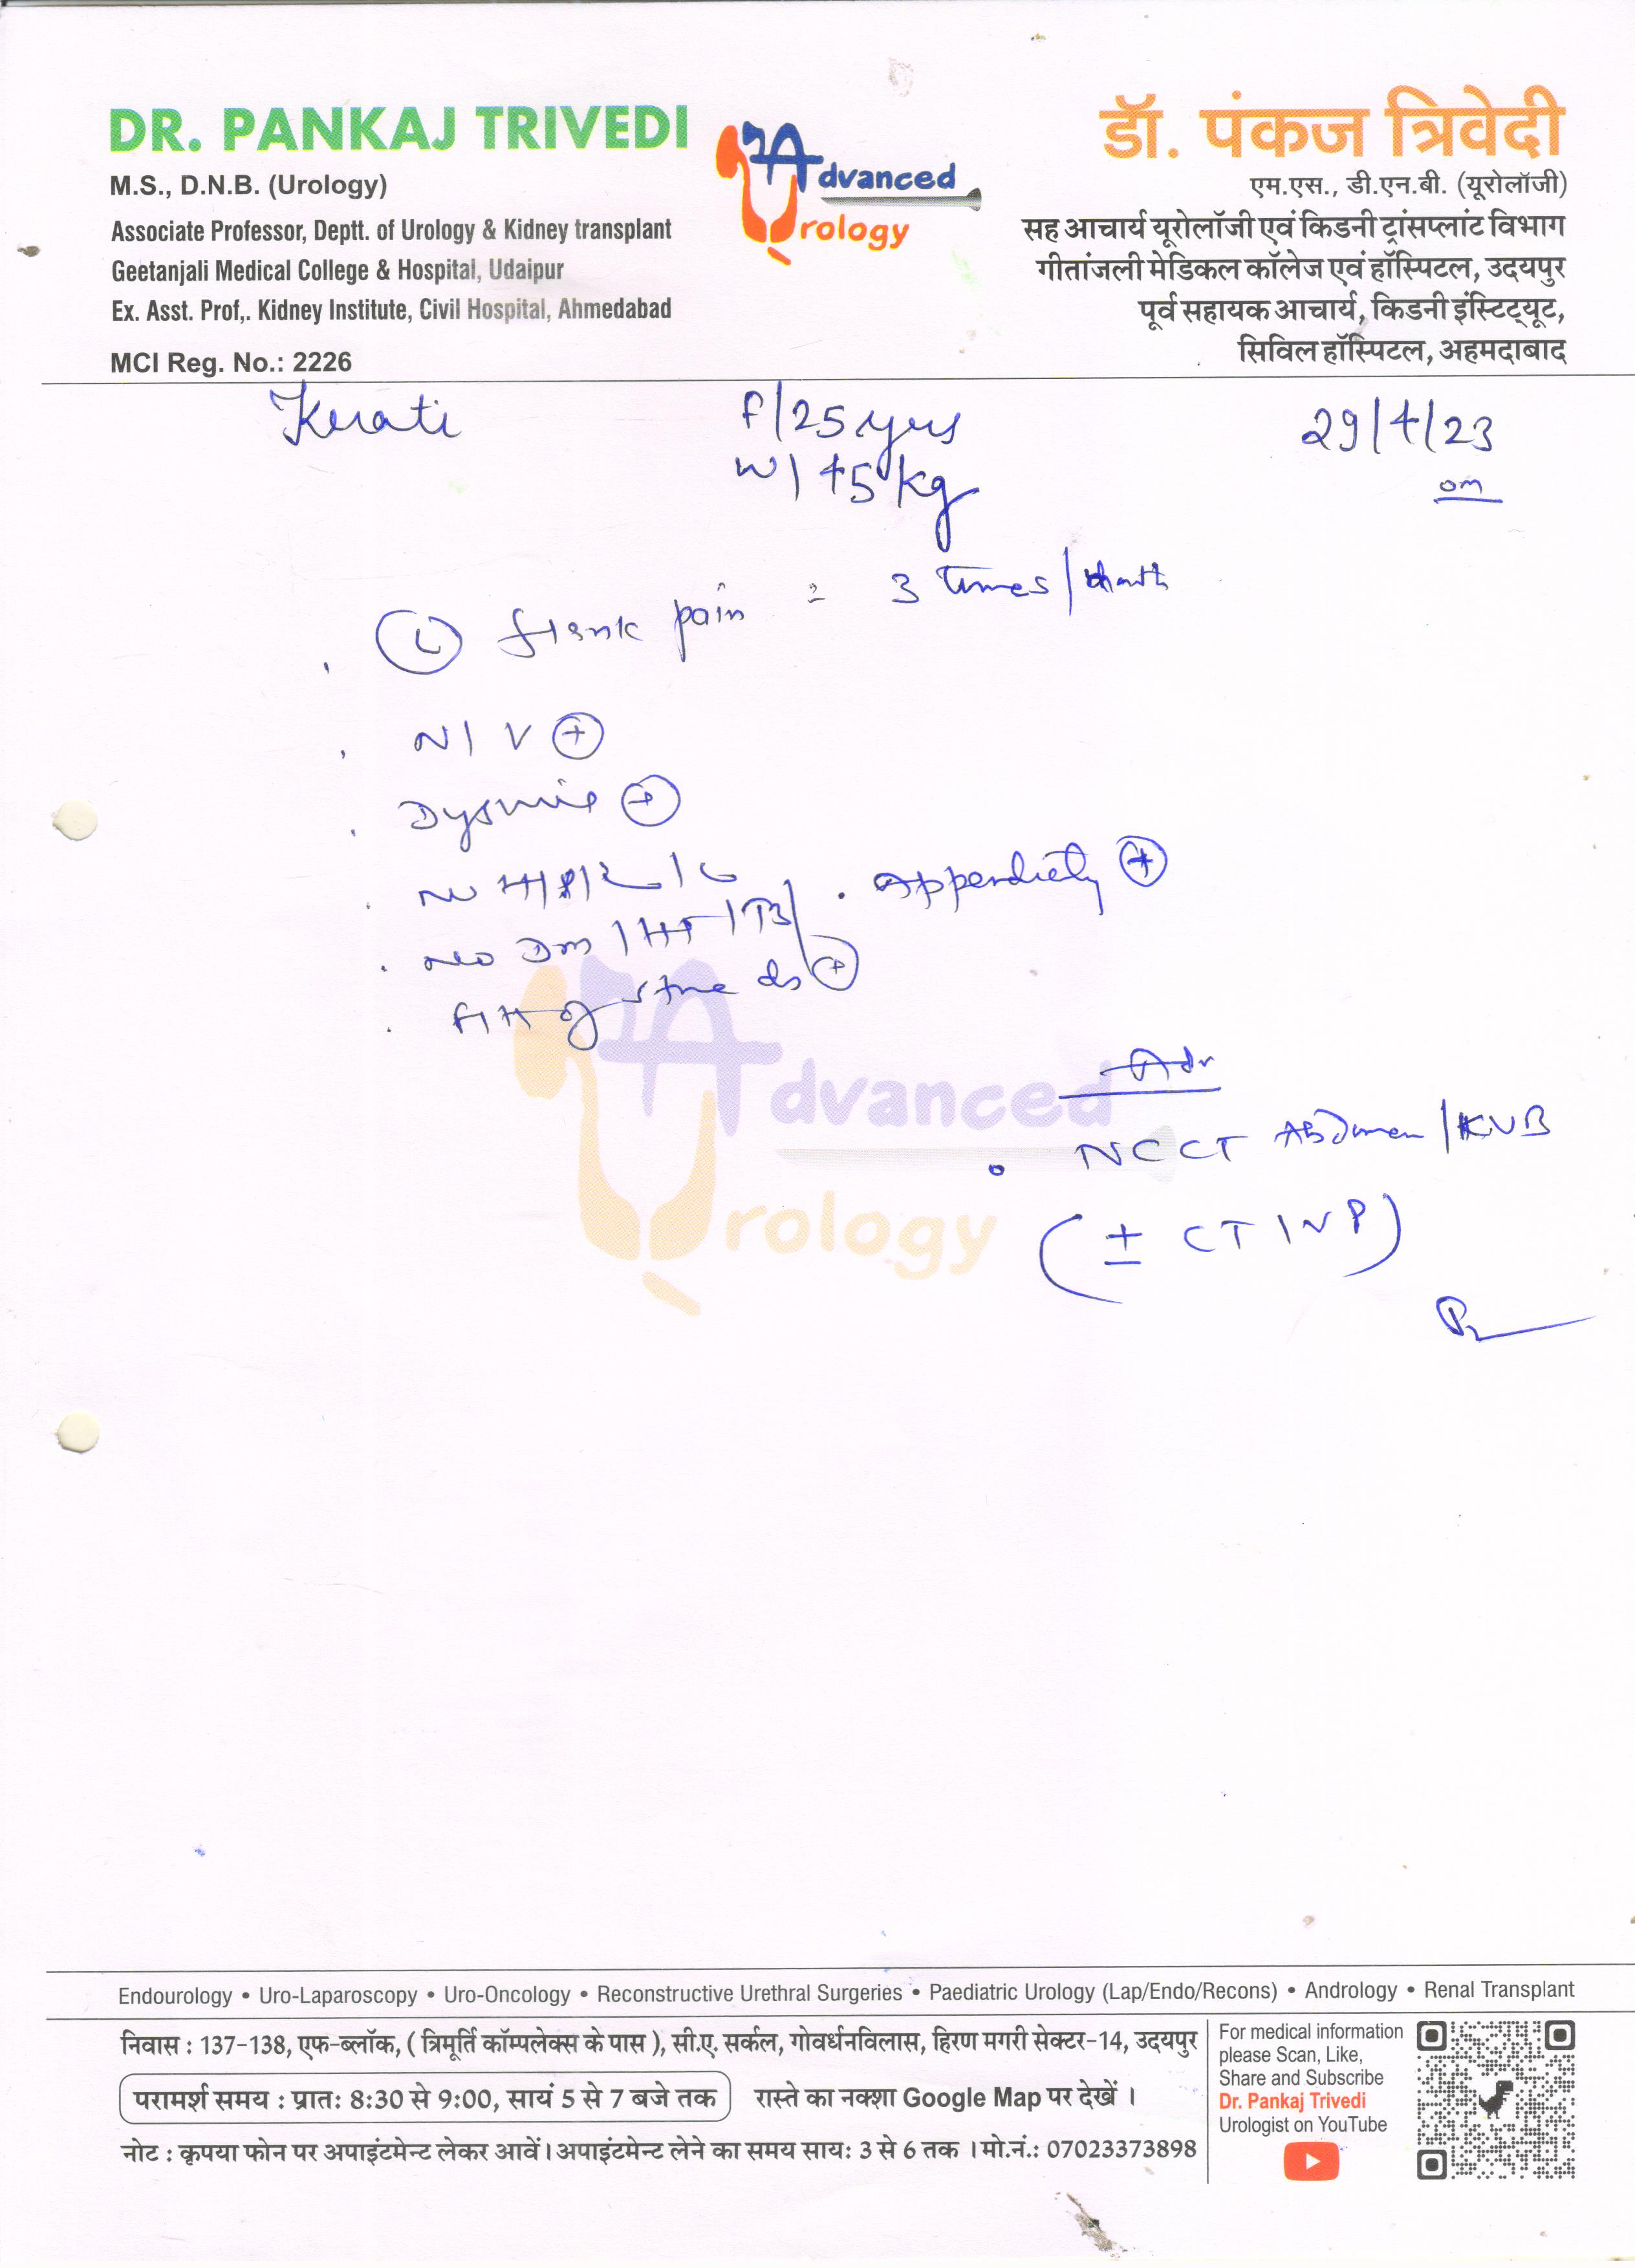 DR. PANKAJ TRIVEDI
M.S., D.N.B. (Urology)
Associate Professor, Deptt. of Urology & Kidney transplant
Geetanjali Medical College & Hospital, Udaipur
Ex. Asst. Prof,. Kidney Institute, Civil Hospital, Ahmedabad
MCI Reg. No.: 2226
Advanced
Urology
डॉ. पंकज त्रिवेदी
एम.एस., डी.एन.बी. (यूरोलॉजी)
सह आचार्य यूरोलॉजी एवं किडनी ट्रांसप्लांट विभाग
गीतांजली मेडिकल कॉलेज एवं हॉस्पिटल, उदयपुर
पूर्व सहायक आचार्य, किडनी इंस्टिट्यूट,
सिविल हॉस्पिटल, अहमदाबाद
F/25 yrs 29/4/23
W/45 kg om
(L) flank pain = 3 times/month
N/V (+)
Dysuria (+)
No
No DM/HT/TB/
F/H of stone ds (+)
Adv
NCCT Abdomen/KUB
(± CT IVP)
Advanced
Urology
Endourology • Uro-Laparoscopy • Uro-Oncology • Reconstructive Urethral Surgeries • Paediatric Urology (Lap/Endo/Recons) • Andrology • Renal Transplant
निवास : 137-138, एफ-ब्लॉक, ( त्रिमूर्ति कॉम्पलेक्स के पास ), सी.ए. सर्कल, गोवर्धनविलास, हिरण मगरी सेक्टर-14, उदयपुर
परामर्श समय : प्रातः 8:30 से 9:00, सायं 5 से 7 बजे तक रास्ते का नक्शा Google Map पर देखें ।
नोट : कृपया फोन पर अपाइंटमेन्ट लेकर आवें। अपाइंटमेन्ट लेने का समय सायः 3 से 6 तक । मो.नं.: 07023373898
For medical information
please Scan, Like,
Share and Subscribe
Dr. Pankaj Trivedi
Urologist on YouTube